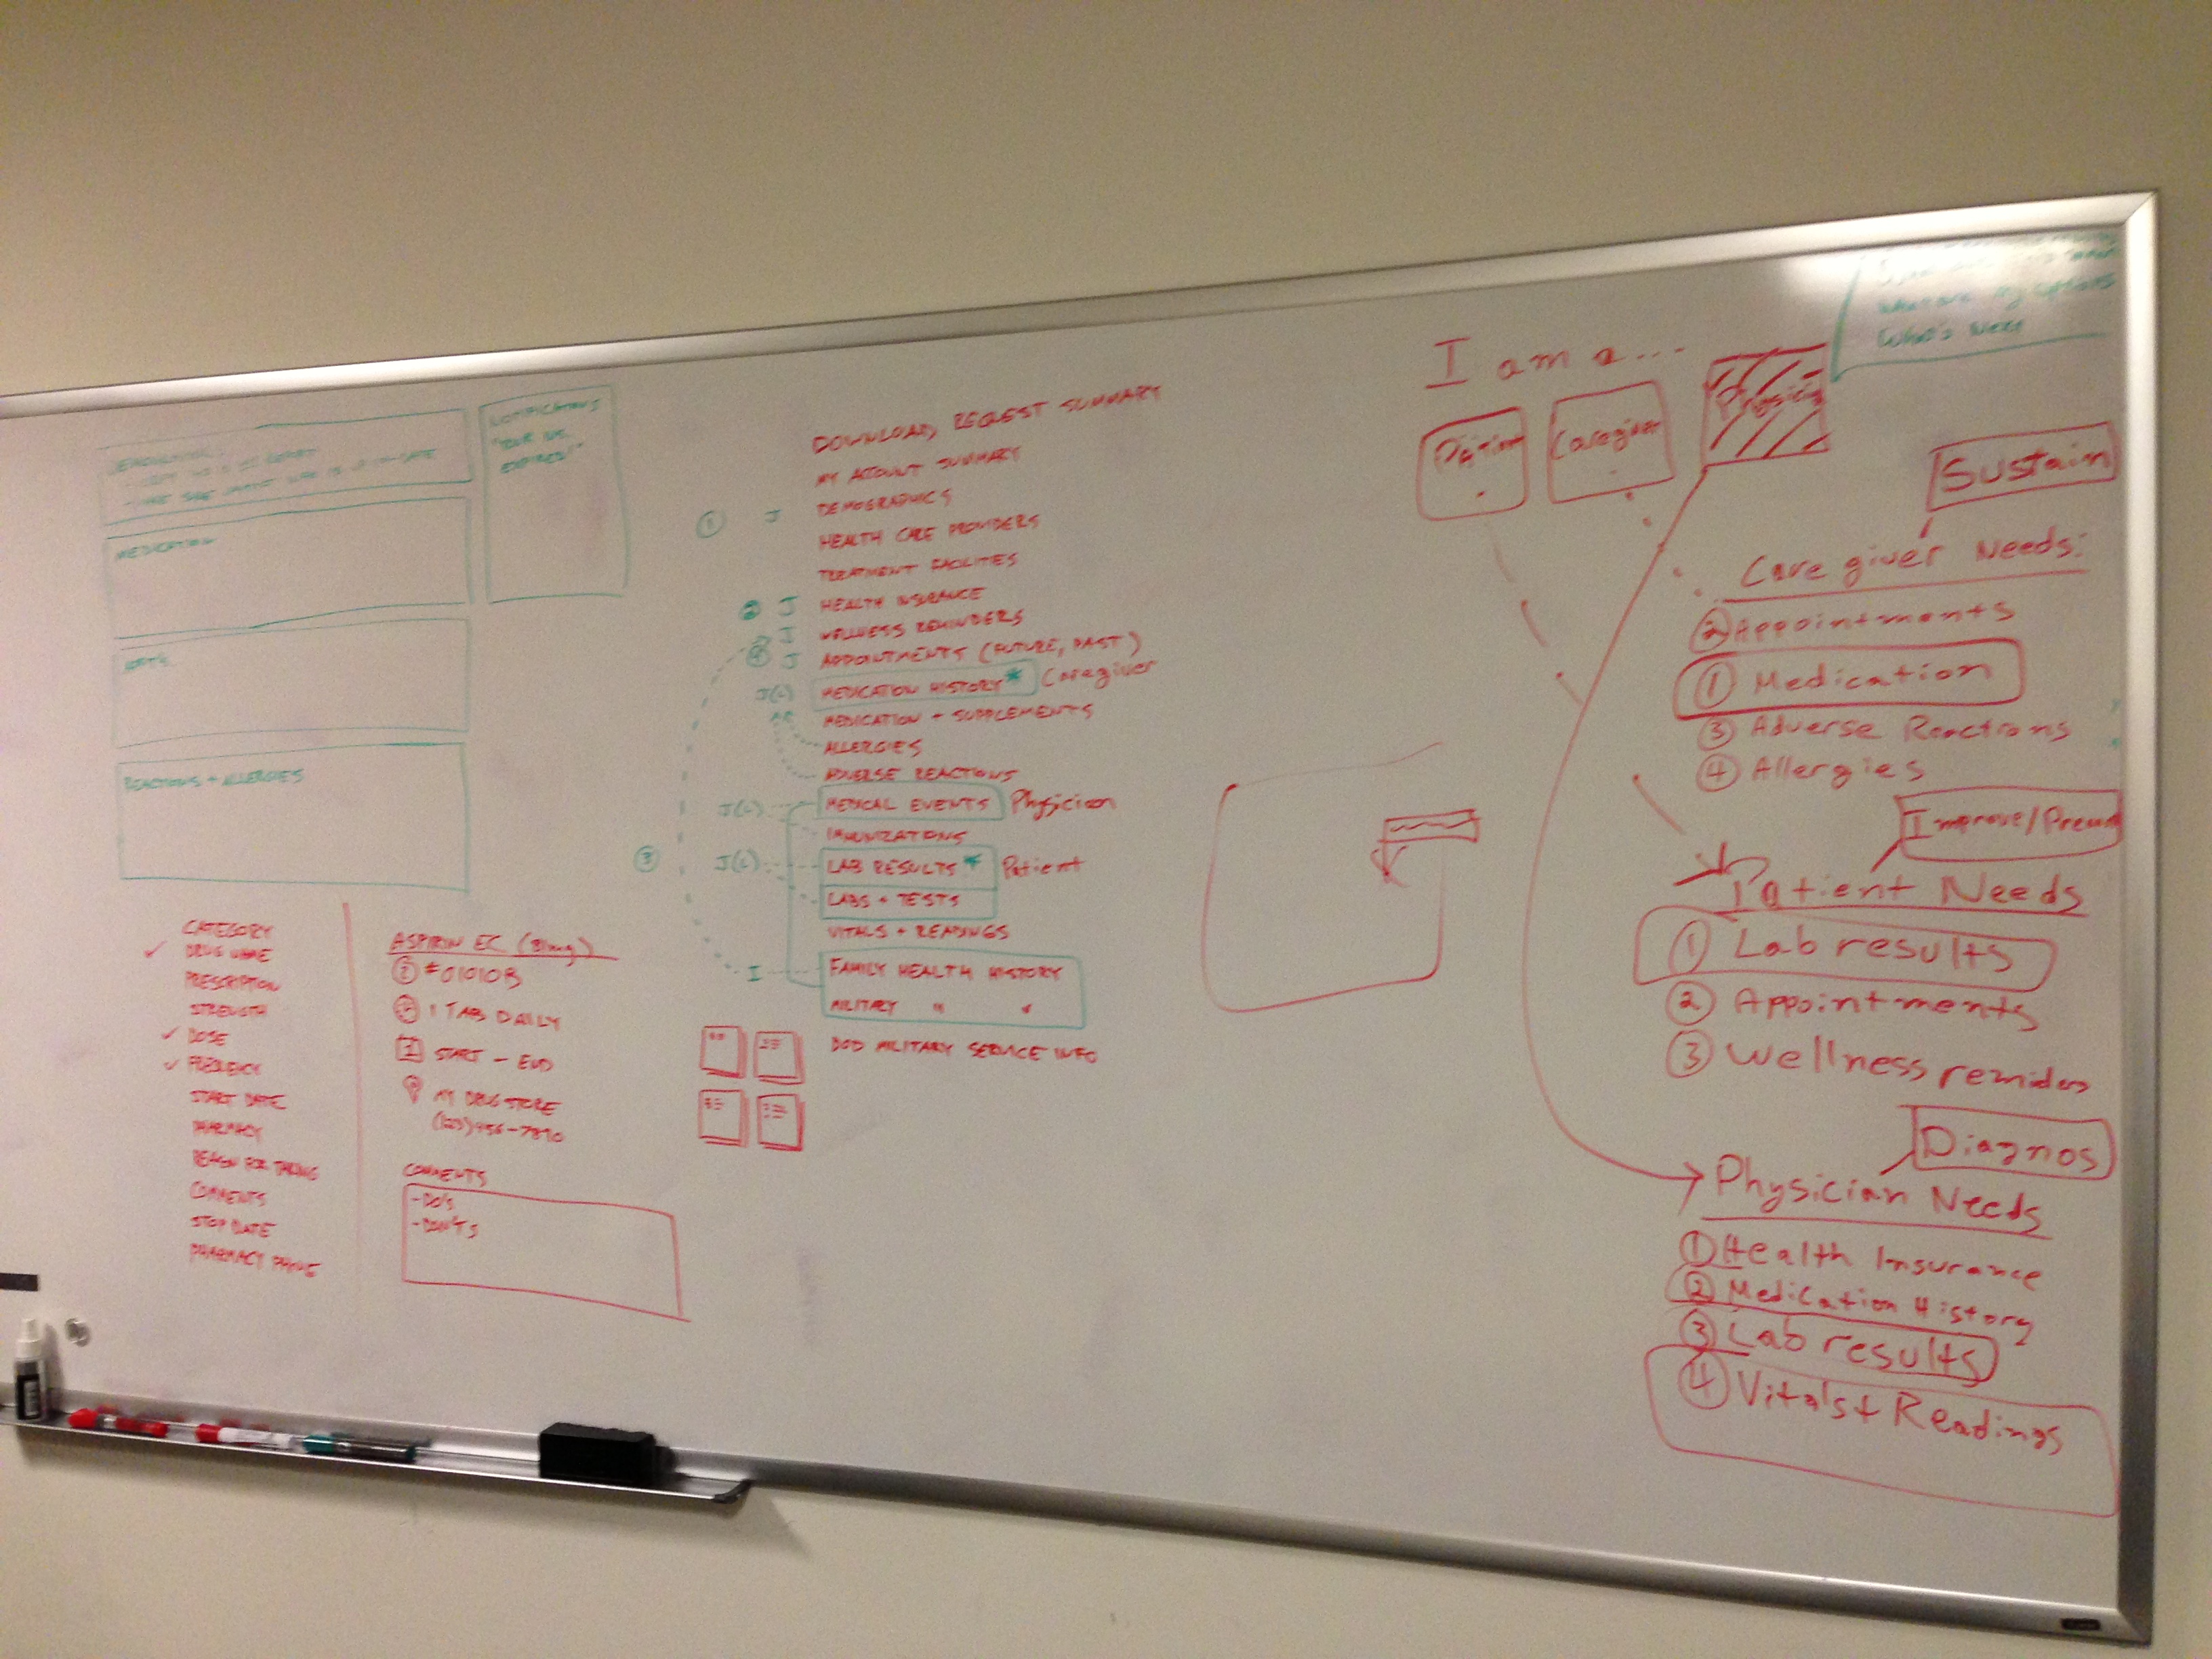 NOTIFICATIONS
"YOUR INS.
EXPIRED!"
MEDICATION
REACTIONS + ALLERGIES
CATEGORY
DRUG NAME
PRESCRIPTION
STRENGTH
DOSE
FREQUENCY
START DATE
PHARMACY
REASON FOR TAKING
COMMENTS
STOP DATE
PHARMACY PHONE
ASPIRIN EC (81mg)
#01010B
1 TAB DAILY
START - END
MY DRUG STORE
(123)456-7890
COMMENTS
- DO'S
- DON'TS
DOWNLOAD, REQUEST SUMMARY
MY ACCOUNT SUMMARY
① J DEMOGRAPHICS
HEALTH CARE PROVIDERS
TREATMENT FACILITIES
② J HEALTH INSURANCE
J WELLNESS REMINDERS
④ J APPOINTMENTS (FUTURE, PAST)
J(L) MEDICATION HISTORY* Caregiver
MEDICATION + SUPPLEMENTS
ALLERGIES
ADVERSE REACTIONS
J(L) MEDICAL EVENTS Physician
IMMUNIZATIONS
③ J(L) LAB RESULTS* Patient
LABS + TESTS
VITALS + READINGS
I FAMILY HEALTH HISTORY
MILITARY " "
DOD MILITARY SERVICE INFO
I am a...
Patient
Caregiver
Physician
What are my options
What's Next
Sustain
Caregiver Needs:
② Appointments
① Medication
③ Adverse Reactions
④ Allergies
Improve/Prevent
Patient Needs
① Lab results
② Appointments
③ Wellness reminders
Diagnos
Physician Needs
① Health Insurance
② Medication History
③ Lab results
④ Vitals + Readings